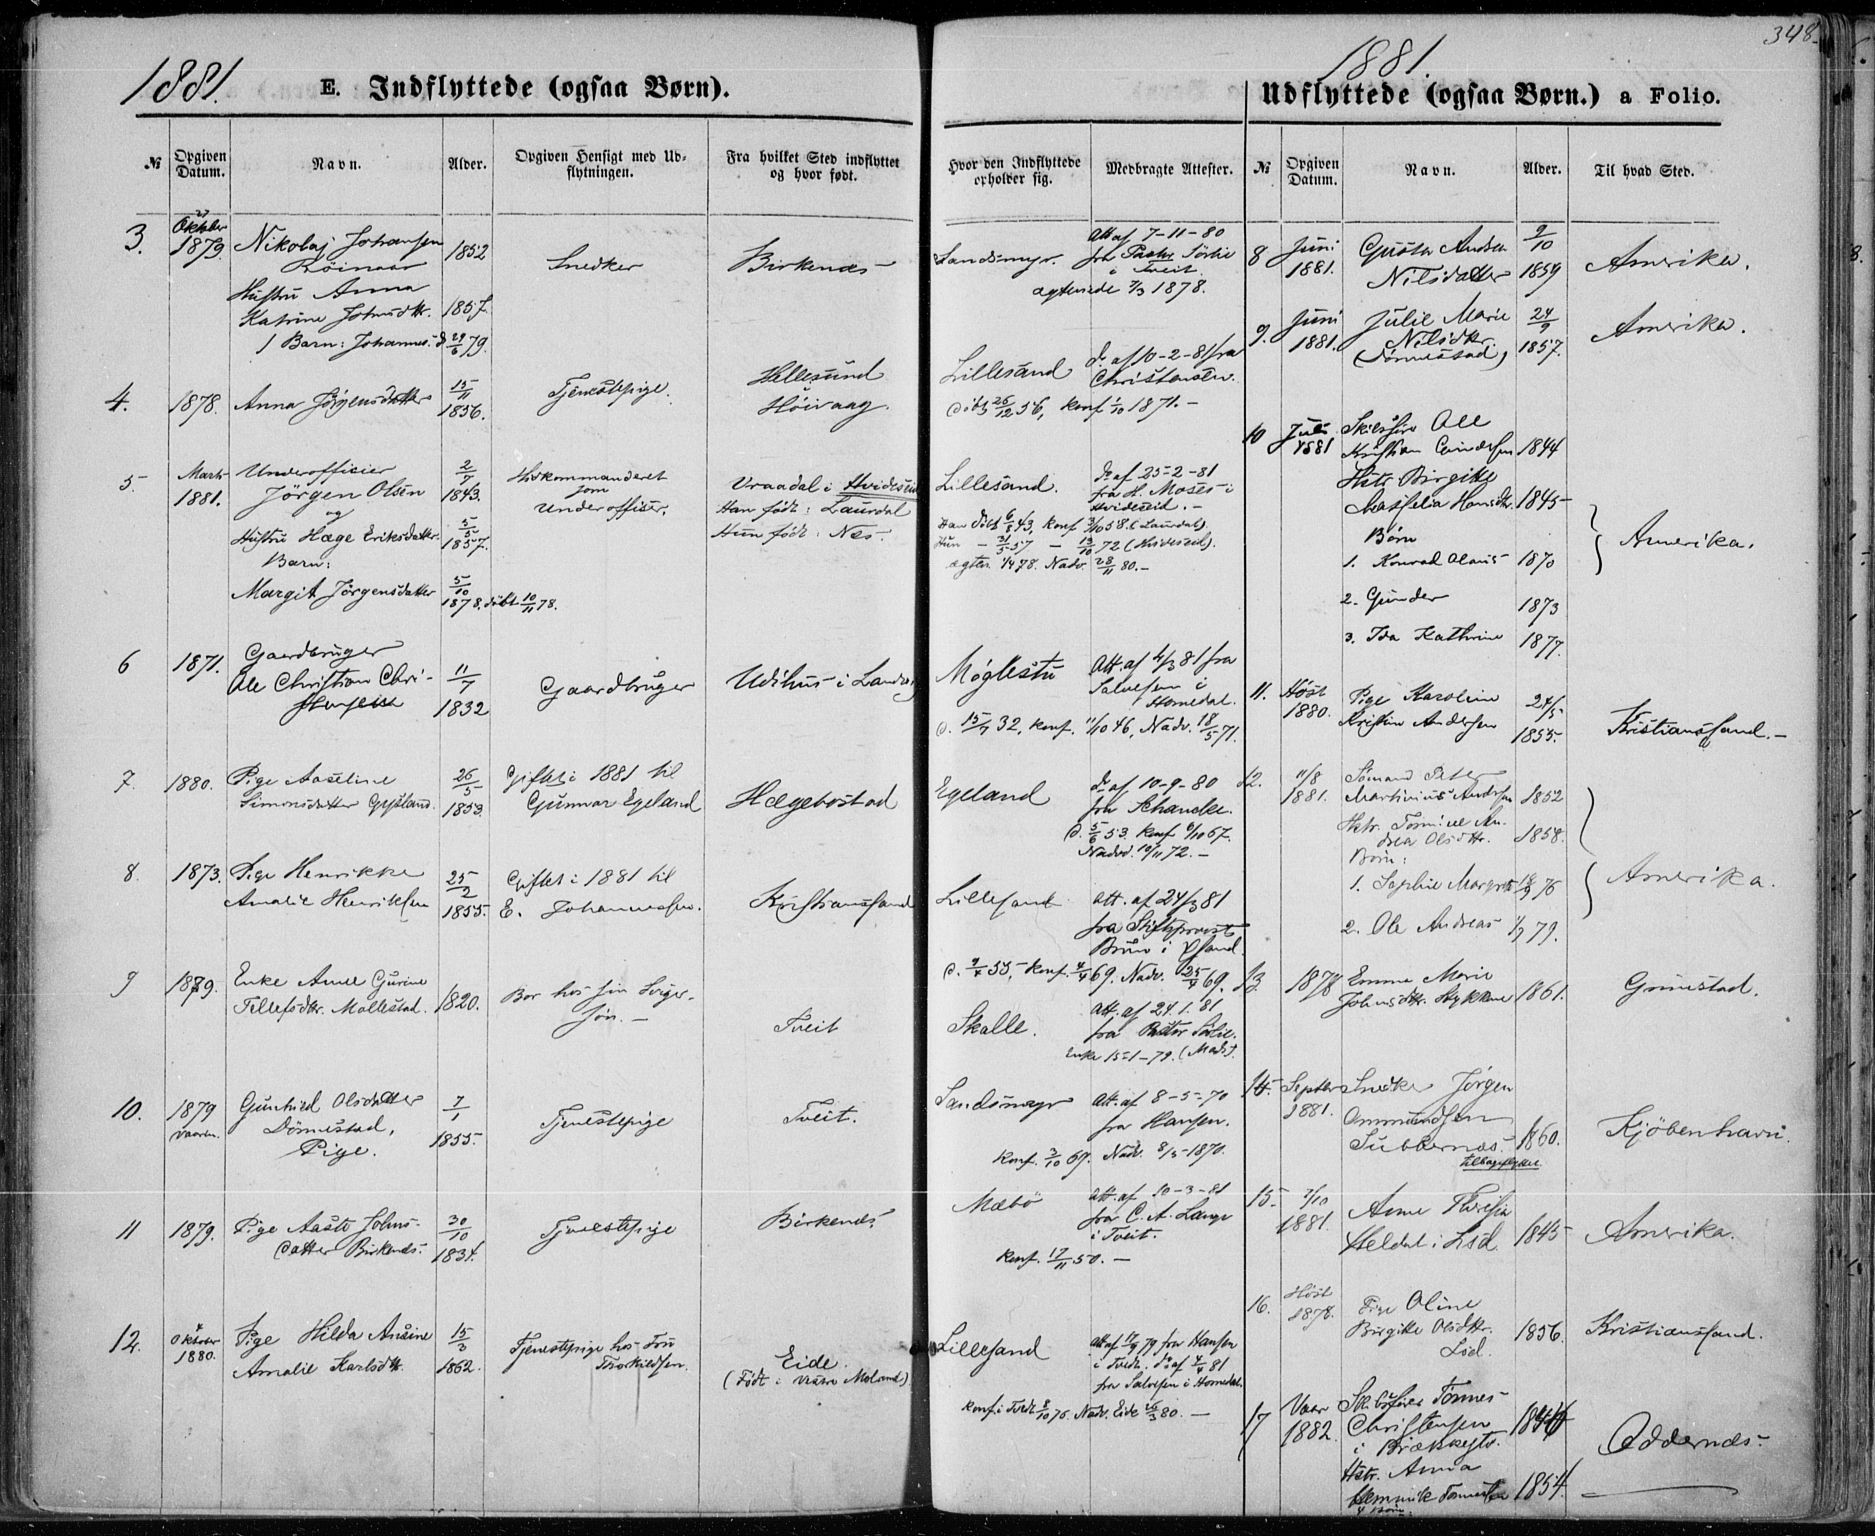 348.
1881.
E. Indflyttede (ogsaa Børn).
1881.
Udflyttede (ogsaa Børn.) a Folio.
№ Opgiven Datum. Navn. Alder. Opgiven Hensigt med Udflytningen. Fra hvilket Sted indflyttet og hvor født. Hvor den Indflyttede opholder sig. Medbragte Attester.
3. 27 Oktober 1879. Nikolaj Johansen
1852 Snedker Birkenæs Landsmyr. Att af 7-11-80
fra Pastor Sörlie
i Tveit.
Hustru Anna
Katrine Johnsdtr. 1857.
ægteviede 7/3 1878.
1 Barn: Johannes. d 29/6 79.
4. 1878. Anna Jörgensdatter 15/11 1856. Tjenestepige. Hellesund
Höivaag.
Lillesand do af 10-2-81 fra
Christensen.
döbt 26/12 56, konf. 1/10 1871.-
5. Marts 1881. Underofficier
Jörgen Olsen 2/7 1843.
og
Hustru Hæge Eriksdatter. 5/5 1857.
Barn:
Margit Jörgensdatter 5/10 1878. döbt 10/11 78.
Hidkommanderet
som
Underofficer.
Vraadal i Hvideseid
Han födt: Laurdal
Hun födt: Næs.
Lillesand. do af 25-2-81
fra H. Moses i
Hvideseid.-
Han döbt 6/8 43, konf 3/10 58 (Laurdal).
Hun - 31/5 57 - 13/10 72 (Hvideseid).
ægtev. 1/4 78. Nadv. 28/11 80.-
6 1871. Gaardbruger
Ole Christian Chri-
stensen
11/7 1832 Gaardbruger Udihus i Landvig
Möglestu Att. af 4/3 81 fra
Salvesen i
Homedal.
d. 15/7 32, konf. 11/10 46, Nadv. 18/5 71.
7. 1880. Pige Aaseline
Simonsdatter Gysland. 26/5 1853.
Giftet i 1881 til
Gunnar Egeland Hægebostad
Egeland do af 10-9-80
fra Schancke.
d. 5/6 53. konf 6/10 67.
Nadv. 10/11 72.-
8. 1873. Pige Henrikke
Amalie Henriksen 25/2 1855.
Giftet i 1881 til
E. Johannessen. Kristianssand
Lillesand att. af 24/3 81
fra Stiftsprovst
d. 9/4 55, konf. 4/4 69. Nadv. 25/4 69.
9 1879. Enke Anne Gurine
Tellefsdtr. Mollestad. 1820.
Bor hos sin Sviger-
søn.- Tveit
Skalle. Att. af 24.1.81
fra Pastor Sörlie.
Enke 15-1-79. (Mads).
10. 1879 Vaaren. Gunhild Olsdatter
Dönnestad,
Pige. 7/1 1855. Tjenestepige Tveit.
Landsmyr Att. af 8-5-70
fra Hansen.
Konf. 3/10 69. Nadv. 8/5-1870.
11 1879. Pige Aaste Johns-
datter Birkenæs. 30/10 1834. Tjenestepige Birkenæs
Mæbö att. af 10-3-81
fra C. A. Lange
i Tveit.
Konf. 17/11 50.-
12. Oktober 1880. Pige Hilda Ansine
Amalie Karlsdtr. 15/3 1862.
Tjenestepige hos Fru
Thorkildsen. Eide.
(Födt i Vestre Moland)
Lillesand att af 17/9 79 fra Hansen
i Tvedt. do af 4/4 81
fra Salvesen i Homedal.
Konf. i Tvedt 8/10 76. Nadv. Eide 26/3 80.-
№ Opgiven Datum. Navn. Alder. Til hvad Sted.
8 Juni 1881. Gusta Andrea
Nilsdatter 9/10 1859 Amerika.
9. Juni 1881. Julie Marie
Nilsdtr.
(Dönnestad) 24/9 1857. Amerika.
10 Juli 1881 Ole
Kristian Gundersen 1844
Hstr Birgitte
Hansdtr. 1845
Børn
1. Konrad Olaus 1870
2. Gunder 1873
3. Ida Kathrine 1877.
Amerika.
11. Høst 1880. Pige Karoline
Kristine Andersen 24/5 1855. Kristianssand.-
12. 11/8 1881. Sømand Peter
Martinius Andersen 1852
Hstr. An-
drea Olsdtr. 1858.
Børn:
1. Sophie Margrete 18/9 76
2. Ole Andreas 1/7 79.
Amerika.
13. 1878 Emma Marie
Johnsdtr. Stykkene 1861. Grimestad.
14. Septbr 1881. Snedker Jörgen
Ommundsen
1860. Kjöbenhavn.
tilbageflyttet.
15. 7/10 1881. Anne Theresia
Heldal i Lsd. 1845 Amerika.
16. Høst 1878. Pige Oline
Birgitte Olsdtr.
Lsd. 1856. Kristianssand.
17 Vaar 1882. Tönnes
Christensen 1844
i
Hstr. Anna
Tönnesen 1854.
4 Børn
Oddernæs.